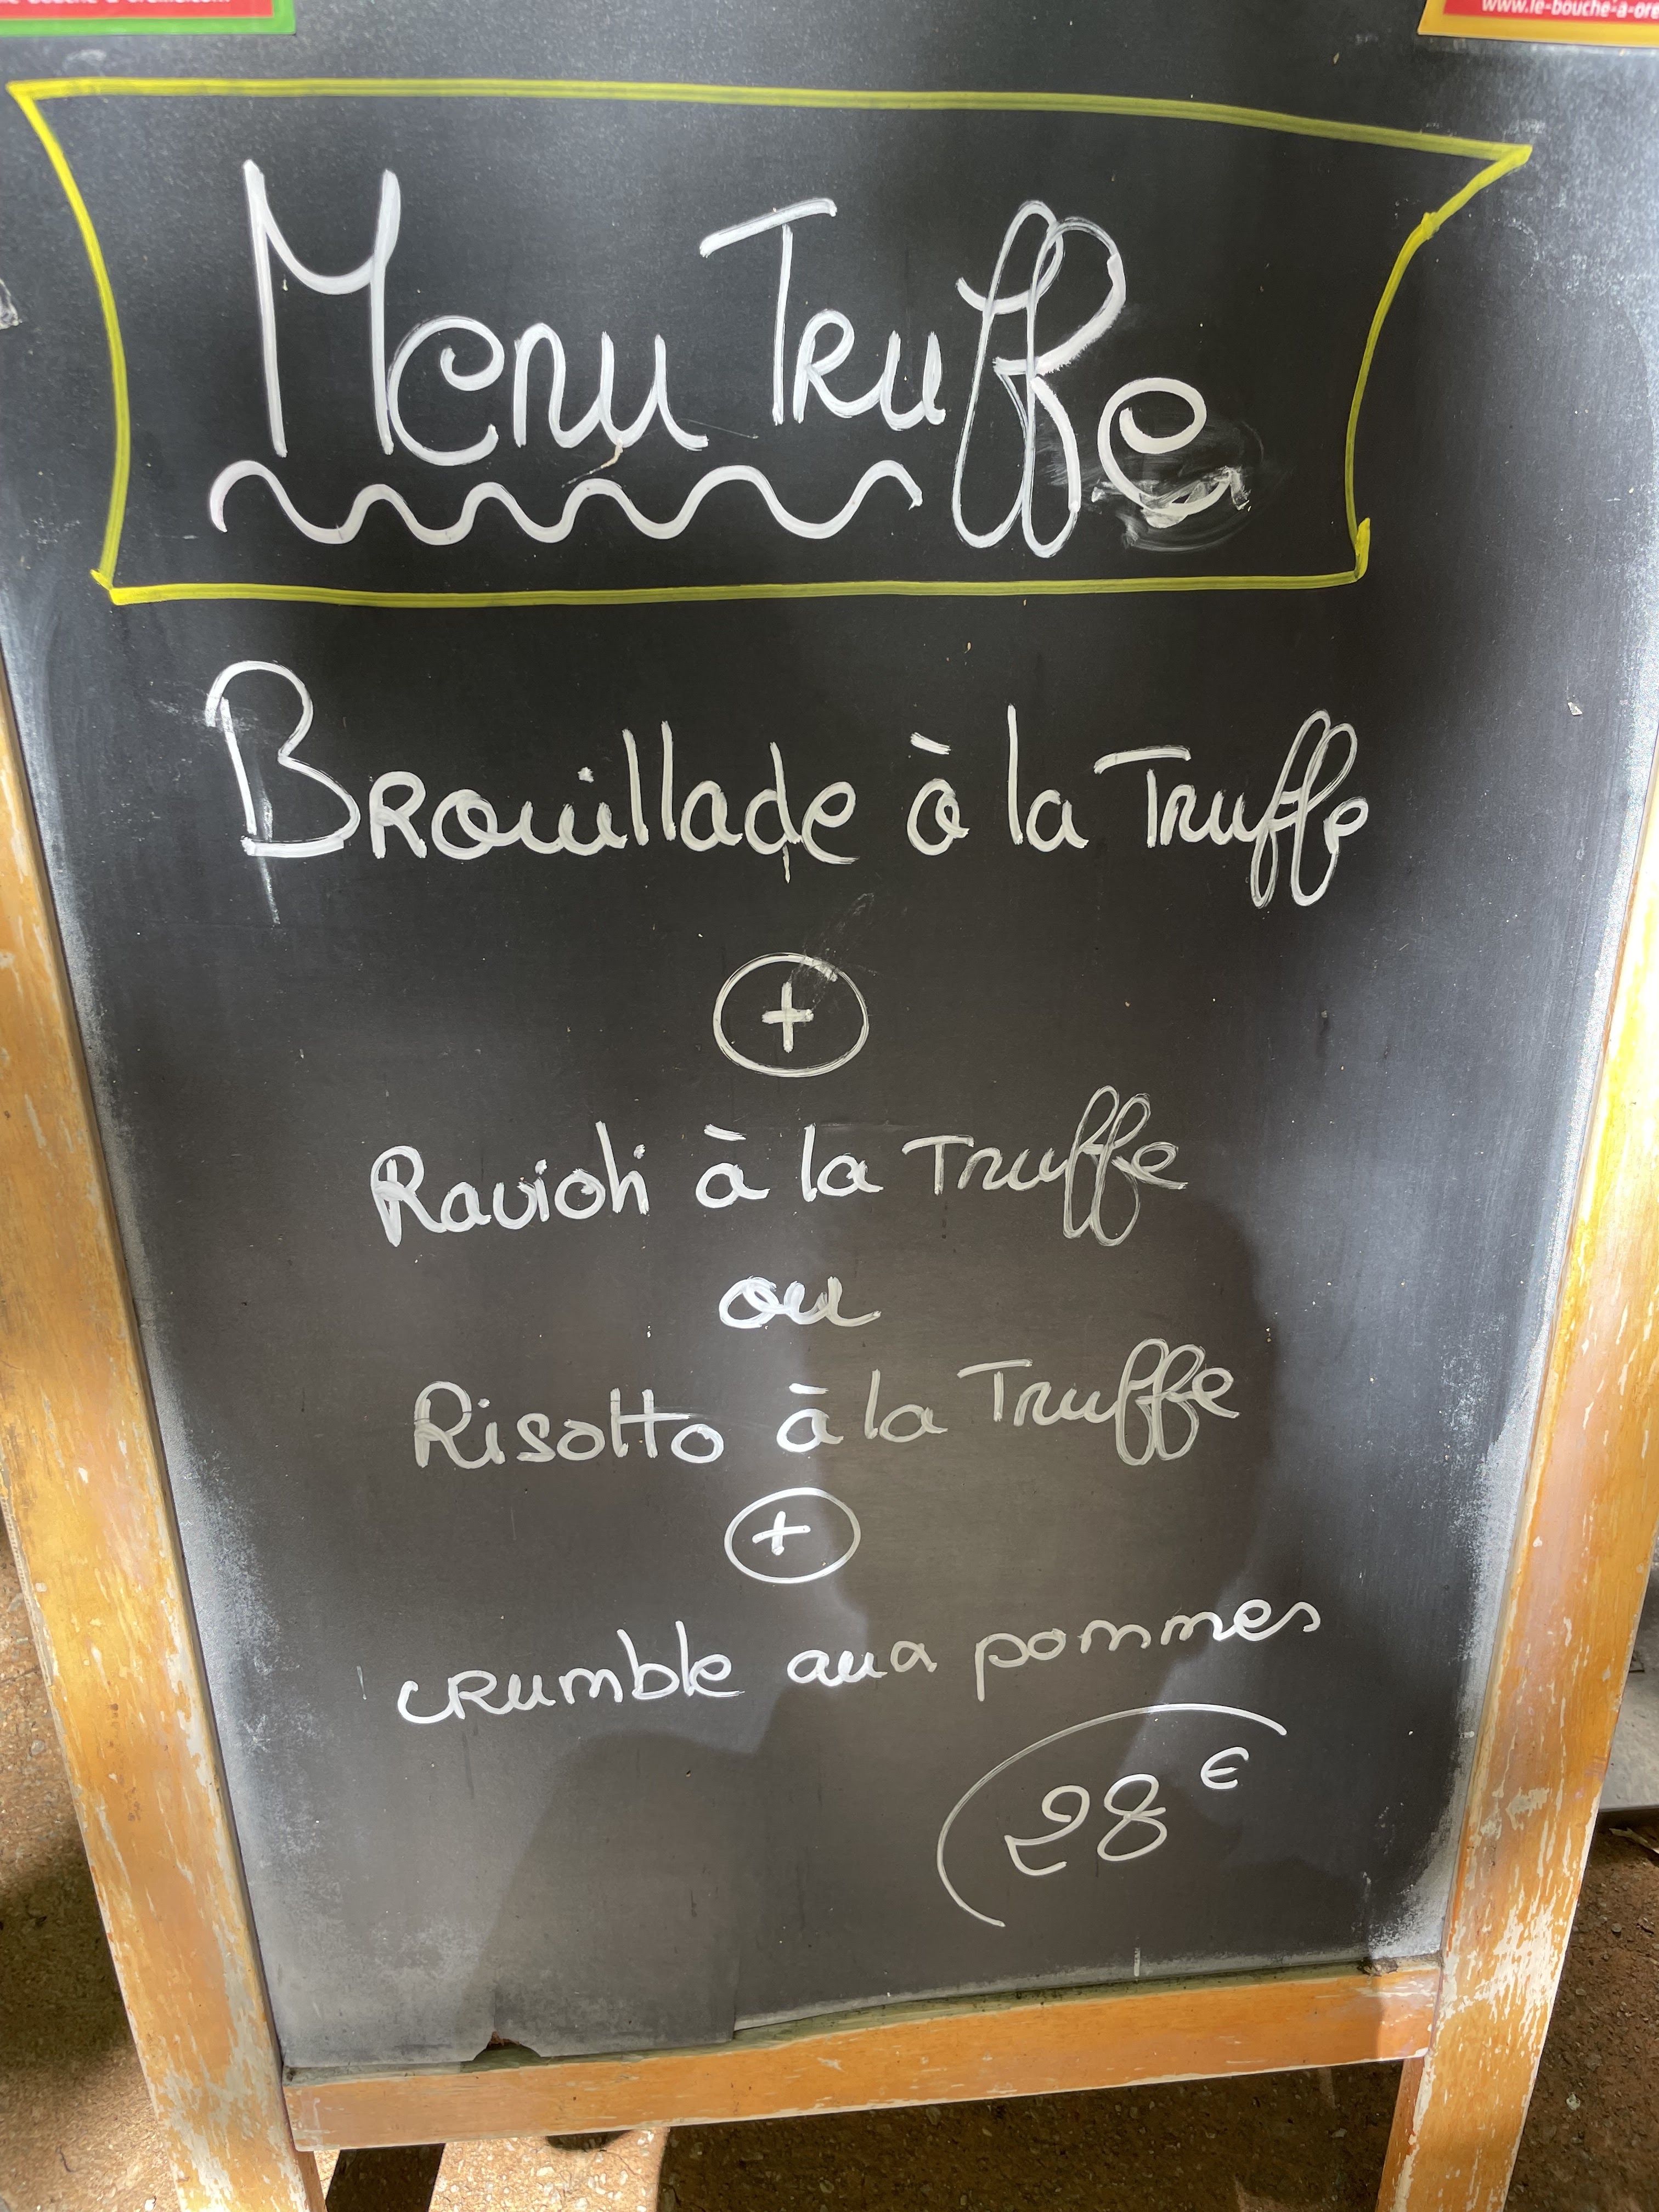 www.le-bouche-a-ore
Menu Truffe
Brouillade à la Truffe
+
Ravioli à la Truffe
ou
Risotto à la Truffe
+
crumble aux pommes
28€